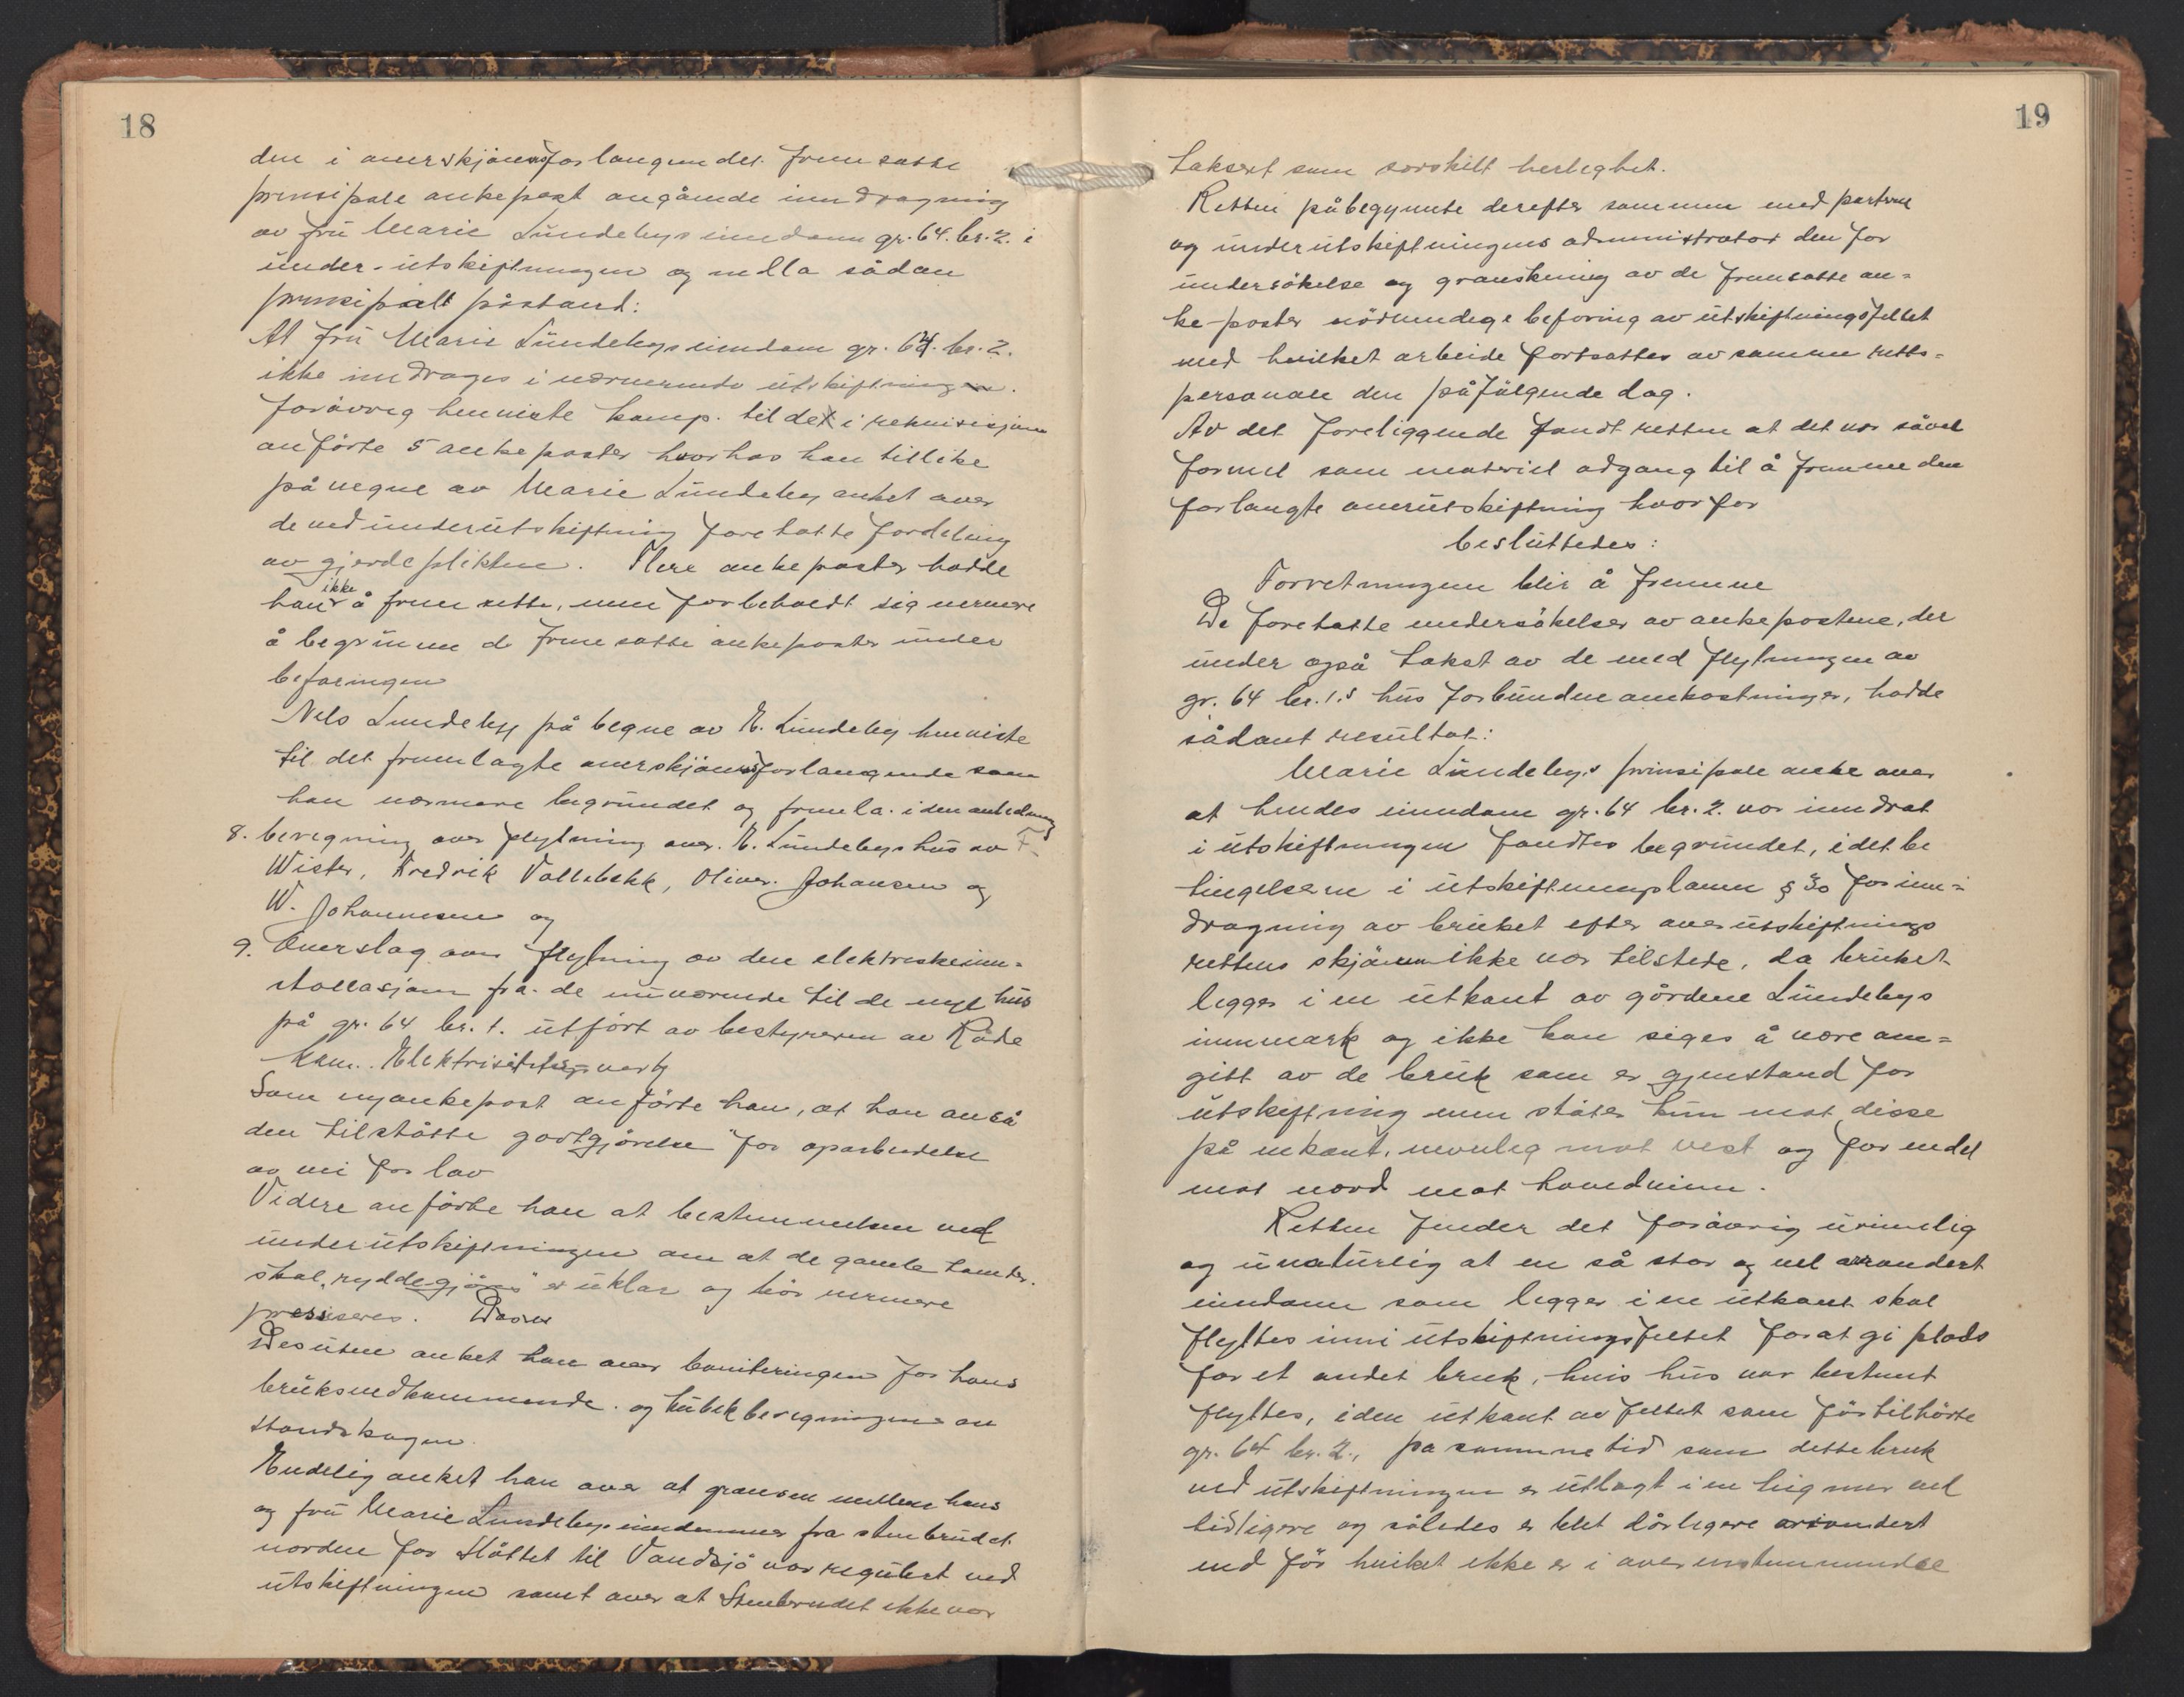 18
den i overskjønsforlangendet fremsatte
prinsipale ankepost angående inndragning
av fru Marie Lundebys eiendom gr. 64. br. 2. i
under-utskiftningen og nedla sådan
prinsipalt påstand:
At fru Marie Lundebys eiendom gr. 64. br. 2.
ikke inndrages i nærværende utskiftning.
Forøvrig henviste komp. til de i rekvisisjonen
anførte 5 ankeposter hvorhos han tillike
på vegne av Marie Lundeby anket over
de ved underutskiftning foretatte fordeling
av gjerdeplikten. Flere ankeposter hadde
han ikke å fremsette, men forbeholdt sig nermere
å begrunne de fremsatte ankeposter under
befaringen
Nels Lundeby på begne av H. Lundeby henviste
til det fremlagte overskjønsforlangende som
han nærmere begrundet og fremla i den anledning
8. beregning over flytning over H. Lundebys hus av F.
Wister, Fredrik Vallebekk, Oliver Johansen og
W. Johannesen og
9. Overslag over flytning av den elektriske inn-
stallasjon fra de nuværende til de nye hus
på gr. 64 br. 1. utført av bestyreren av Råde
kom. Elektrisitetsverk
Som ny ankepost anførte han, at han anså
den tilståtte godtgjørelse for oparbeidelse
av vei for lav
Videre anførte han at bestemmelsen ved
underutskiftningen om at de gamle tomter
skal "ryddegjøres" er uklar og bør nermere
presiseres.
Desuten anket han over boniteringen for hans
bruksvedkommende og kubikkberegningen av
standskogen.
Endelig anket han over at grensen mellem hans
og fru Marie Lundebys eiendommer fra stenbrudet
norden for Slåttet til Vandsjø var regulert ved
utskiftningen samt over at Stenbrudet ikke var
19
taksert som særskilt herlighet.
Retten påbegynnte derefter sammen med partene
og underutskiftningens administrator den for
undersøkelse og granskning av de fremsatte an-
ke-poster nødvendige befaring av utskiftningsfeltet
med hvilket arbeide fortsattes av samme retts-
personale den påfølgende dag.
Av det foreliggende fandt retten at det var såvel
formel som materiel adgang til å fremme den
forlangte overutskiftning hvorfor
besluttedes:
Forretningen blir å fremme
De foretatte undersøkelser av ankepostene, der
under også takst av de med flytningen av
gr. 64 br. 1.s hus forbundne omkostninger, hadde
sådant resultat:
Marie Lundeby's prinsipale anke over
at hendes eiendom gr. 64 br. 2. var inndrat
i utskiftningen fandtes begrundet, idet be
tingelsene i utskiftningsplanen § 30 for inn-
dragning av bruket efter overutskiftnings
rettens skjønn ikke var tilstede, da bruket
ligger i en utkant av gårdene Lundebys
innmark og ikke kan siges å være om-
gitt av de bruk som er gjenstand for
utskiftning men støter kun mot disse
på en kant, nemlig mot vest og for endel
mot nord mot hovedveien.
Retten finder det forøvrig urimelig
og unaturlig at en så stor og vel arrondert
eiendom som ligger i en utkant skal
flyttes inn i utskiftningsfeltet for at gi plads
for et andet bruk, hvis hus var bestemt
flyttes, i den utkant av feltet som før tilhørte
gr. 64 br. 2., på samme tid som dette bruk
ved utskiftningen er utlagt i en teig mer enn
tidligere og således er blit dårligere arrondert
end før hvilket ikke er i overenstemmendse